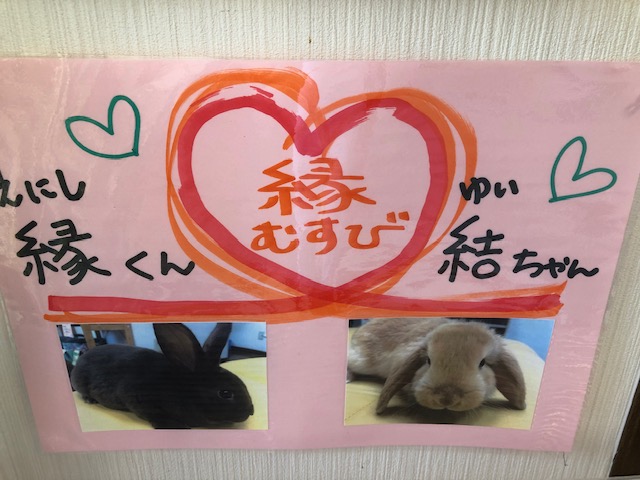 縁
むすび
えにし
縁くん
ゆい
結ちゃん